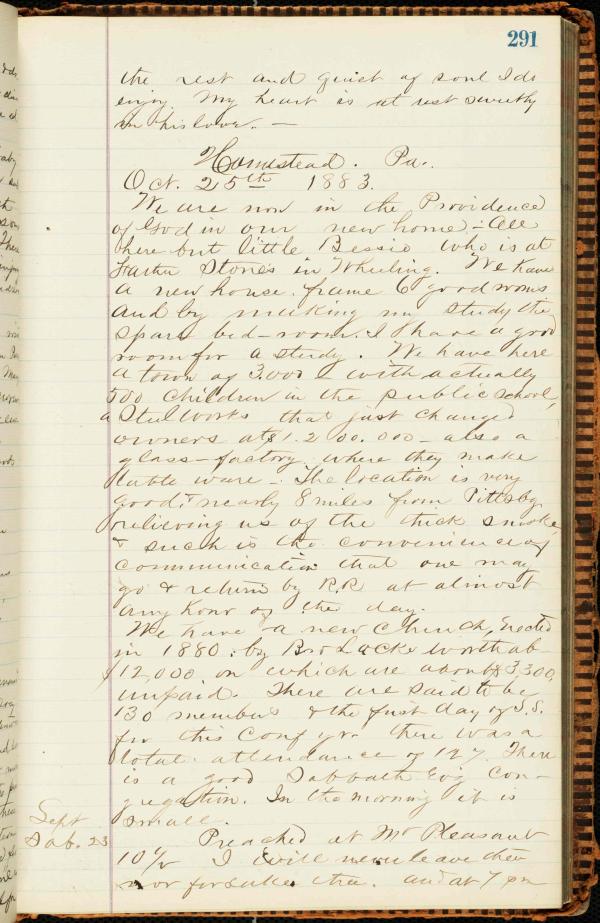 291
the rest and quiet of soul I do
enjoy. My heart is at rest sweetly
in his love. —
Homestead. Pa.
Oct. 25th 1883.
We are now in the Providence
of God in our new home. - All
here but little Bessie who is at
Father Stones in Wheeling. We have
a new house. frame 6 good rooms
and by making my study the
spare bed-room. I have a good
room for a study. We have here
a town of 3.000 - with actually
500 children in the public school,
a Steel Works that just changed
owners at $1.200.000 - also a
glass-factory where they make
table ware - The location is very
good, nearly 8 miles from Pittsbg
relieving us of the thick smoke,
& such is the convenience of
communication that one may
go & return by R.R at almost
any hour of the day.
We have a new Church, Erected
in 1880. by Bro worth ab
$12,000. on which are about $3,300.
unpaid. There are said to be
130 members & the first day of S.S.
for this Conf yr there was a
total attendance of 127. There
is a good Sabbath Evg con-
gregation. In the morning it is
small.
Sept
Sab. 23
Preached at Mt Pleasant
10 1/2 I will never leave thee
nor forsake thee. and at 7 pm